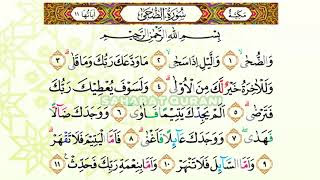 مَكِّيَّة سُورَةُ الضُّحَى آيَاتُهَا ١١
بِسْمِ اللَّهِ الرَّحْمَٰنِ الرَّحِيمِ
وَالضُّحَىٰ ١ وَالَّيْلِ إِذَا سَجَىٰ ٢ مَا وَدَّعَكَ رَبُّكَ وَمَا قَلَىٰ ٣
وَلَلْآخِرَةُ خَيْرٌ لَّكَ مِنَ الْأُولَىٰ ٤ وَلَسَوْفَ يُعْطِيكَ رَبُّكَ
فَتَرْضَىٰ ٥ أَلَمْ يَجِدْكَ يَتِيمًا فَآوَىٰ ٦ وَوَجَدَكَ ضَآلًّا
فَهَدَىٰ ٧ وَوَجَدَكَ عَآئِلًا فَأَغْنَىٰ ٨ فَأَمَّا الْيَتِيمَ فَلَا تَقْهَرْ
٩ وَأَمَّا السَّآئِلَ فَلَا تَنْهَرْ ١٠ وَأَمَّا بِنِعْمَةِ رَبِّكَ فَحَدِّثْ ١١